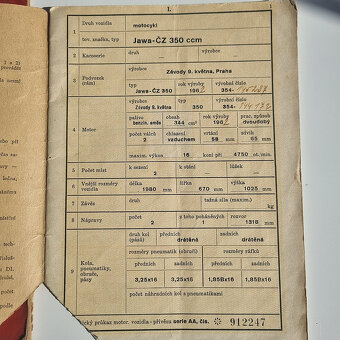 I.
1 Druh vozidla motocykl
tov. značka, typ Jawa-ČZ 350 ccm
2 Karoserie druh výrobce
výrobce
3 Podvozek (rám) Závody 9. května, Praha
typ rok výroby výrobní číslo
Jawa-ČZ 350 196 354-
výrobce typ výrobní číslo
Závody 9. května 350 354-
4 Motor
palivo obsah rok výroby prac. způsob
benzin. směs 344 cm³ 196 dvoudobý
počet válců chlazení vrtání zdvih
2 vzduchem 58 mm 65 mm
maxim. výkon 16 koní při 4750 ot. min.
5 Počet míst k sezení k stání lůžek
2
6 Vnější rozměry vozidla délka šířka výška
1980 mm 670 mm 1025 mm
7 Závěs druh tažná síla (maxim.)
kg
8 Nápravy počet z toho poháněných rozvor
2 1 1318 mm
druh kol (pásů) předních zadních
drátěná drátěná
9 Kola, pneumatiky, obruče, pásy
rozměry pneumatik (obručí) rozměry ráfků
předních zadních předních zadních
3,25x16 3,25x16 1,85Bx16 1,85Bx16
počet náhradních kol a pneumatikami
ický průkaz motor. vozidla - přívěsu serie AA, čís. 912247